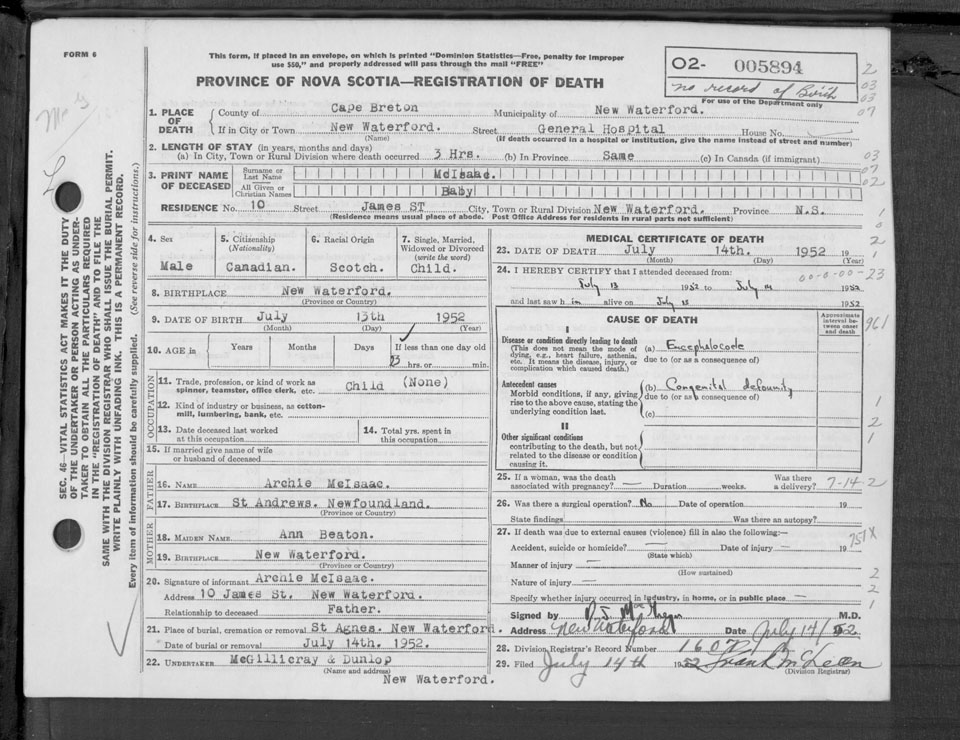 FORM 6
This form, if placed in an envelope, on which is printed "Dominion Statistics—Free, penalty for improper
use $50," and properly addressed will pass through the mail "FREE"
PROVINCE OF NOVA SCOTIA—REGISTRATION OF DEATH
O2- 005894
no record of Birth
For use of the Department only
1. PLACE OF DEATH
County of Cape Breton Municipality of New Waterford.
If in City or Town New Waterford. Street General Hospital House No.
(If death occurred in a hospital or institution, give the name instead of street and number)
2. LENGTH OF STAY (in years, months and days)
(a) In City, Town or Rural Division where death occurred 3 Hrs. (b) In Province Same (c) In Canada (if immigrant)
3. PRINT NAME OF DECEASED
Surname or Last Name McIsaac.
All Given or Christian Names Baby
RESIDENCE No. 10 Street James ST City, Town or Rural Division New Waterford. Province N.S.
(Residence means usual place of abode. Post Office Address for residents in rural parts not sufficient)
4. Sex
Male
5. Citizenship
(Nationality)
Canadian.
6. Racial Origin
Scotch.
7. Single, Married,
Widowed or Divorced
(write the word)
Child.
8. BIRTHPLACE New Waterford.
(Province or Country)
9. DATE OF BIRTH July 13th 1952
(Month) (Day) (Year)
10. AGE in Years Months Days If less than one day old
3 hrs. or min.
OCCUPATION
11. Trade, profession, or kind of work as
spinner, teamster, office clerk, etc. Child (None)
12. Kind of industry or business, as cotton-
mill, lumbering, bank, etc.
13. Date deceased last worked
at this occupation
14. Total yrs. spent in
this occupation
15. If married give name of wife
or husband of deceased
FATHER
16. NAME Archie McIsaac.
17. BIRTHPLACE St Andrews. Newfoundland.
(Province or Country)
MOTHER
18. MAIDEN NAME Ann Beaton.
19. BIRTHPLACE New Waterford.
(Province or Country)
20. Signature of informant Archie McIsaac.
Address 10 James St. New Waterford.
Relationship to deceased Father.
21. Place of burial, cremation or removal St Agnes. New Waterford.
Date of burial or removal July 14th. 1952.
22. UNDERTAKER McGillicray & Dunlop
(Name and address)
New Waterford.
MEDICAL CERTIFICATE OF DEATH
23. DATE OF DEATH July 14th. 1952 19
(Month) (Day) (Year)
24. I HEREBY CERTIFY that I attended deceased from:
July 13 1952 to July 14 1952
and last saw him alive on July 13 1952
CAUSE OF DEATH
Approximate
interval be-
tween onset
and death
I
Disease or condition directly leading to death
(This does not mean the mode of
dying, e.g., heart failure, asthenia,
etc. It means the disease, injury, or
complication which caused death.)
(a) Encephalocode
due to (or as a consequence of)
Antecedent causes
Morbid conditions, if any, giving
rise to the above cause, stating the
underlying condition last.
(b) Congenital deformity
due to (or as a consequence of)
(c)
II
Other significant conditions
contributing to the death, but not
related to the disease or condition
causing it.
25. If a woman, was the death
associated with pregnancy? — Duration weeks. Was there
a delivery? 7-14-2
26. Was there a surgical operation? No Date of operation 19
State findings Was there an autopsy?
27. If death was due to external causes (violence) fill in also the following:—
Accident, suicide or homicide? — Date of injury — 19
(State which)
Manner of injury —
(How sustained)
Nature of injury —
Specify whether injury occurred in industry, in home, or in public place —
Signed by M.D.
Address New Waterford Date July 14/52
28. Division Registrar's Record Number 1607
29. Filed July 14th 1952 Frank McLean
(Division Registrar)
SEC. 46—VITAL STATISTICS ACT MAKES IT THE DUTY
OF THE UNDERTAKER OR PERSON ACTING AS UNDER-
TAKER TO OBTAIN ALL THE PARTICULARS REQUIRED
IN THE "REGISTRATION OF DEATH" AND TO FILE THE
SAME WITH THE DIVISION REGISTRAR WHO SHALL ISSUE THE BURIAL PERMIT.
WRITE PLAINLY WITH UNFADING INK. THIS IS A PERMANENT RECORD.
Every item of information should be carefully supplied. (See reverse side for instructions.)
2
03
03
07
03
07
02
1
0
2
1
00-0-00-23
961
1
2
1
751X
2
2
1